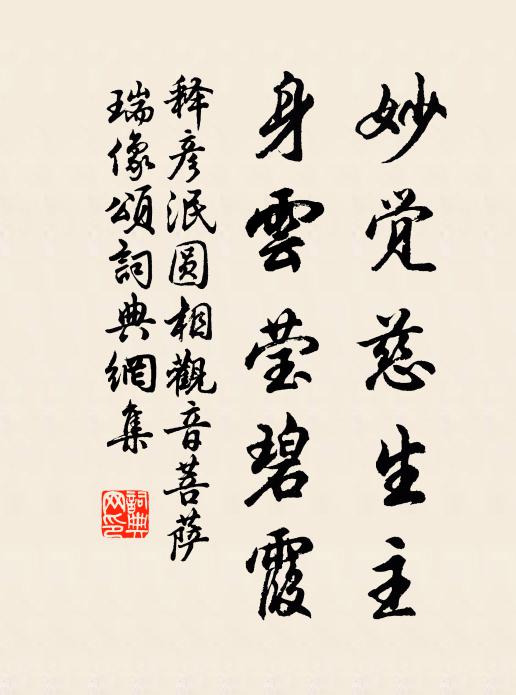 妙觉慈生主
身雲莹碧霞
释彦泯圆相觀音菩萨
瑞像頌詞典網集
詞典
网印